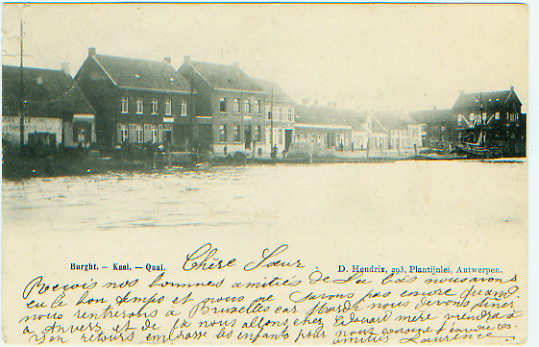 Burght. — Kaai. — Quai.
D. Hendrix, 203, Plantijnlei, Antwerpen.
Chère Sœur
Reçois nos bonnes amitiés de là bas nous avons
eu le bon temps et nous ne savons pas encore quand
nous rentrerons à Bruxelles car Mardi nous devons diner
à Anvers et de là nous allons chez Edouard mère viendra à
retours embrasse les enfants pour nous
amitiés Laurence